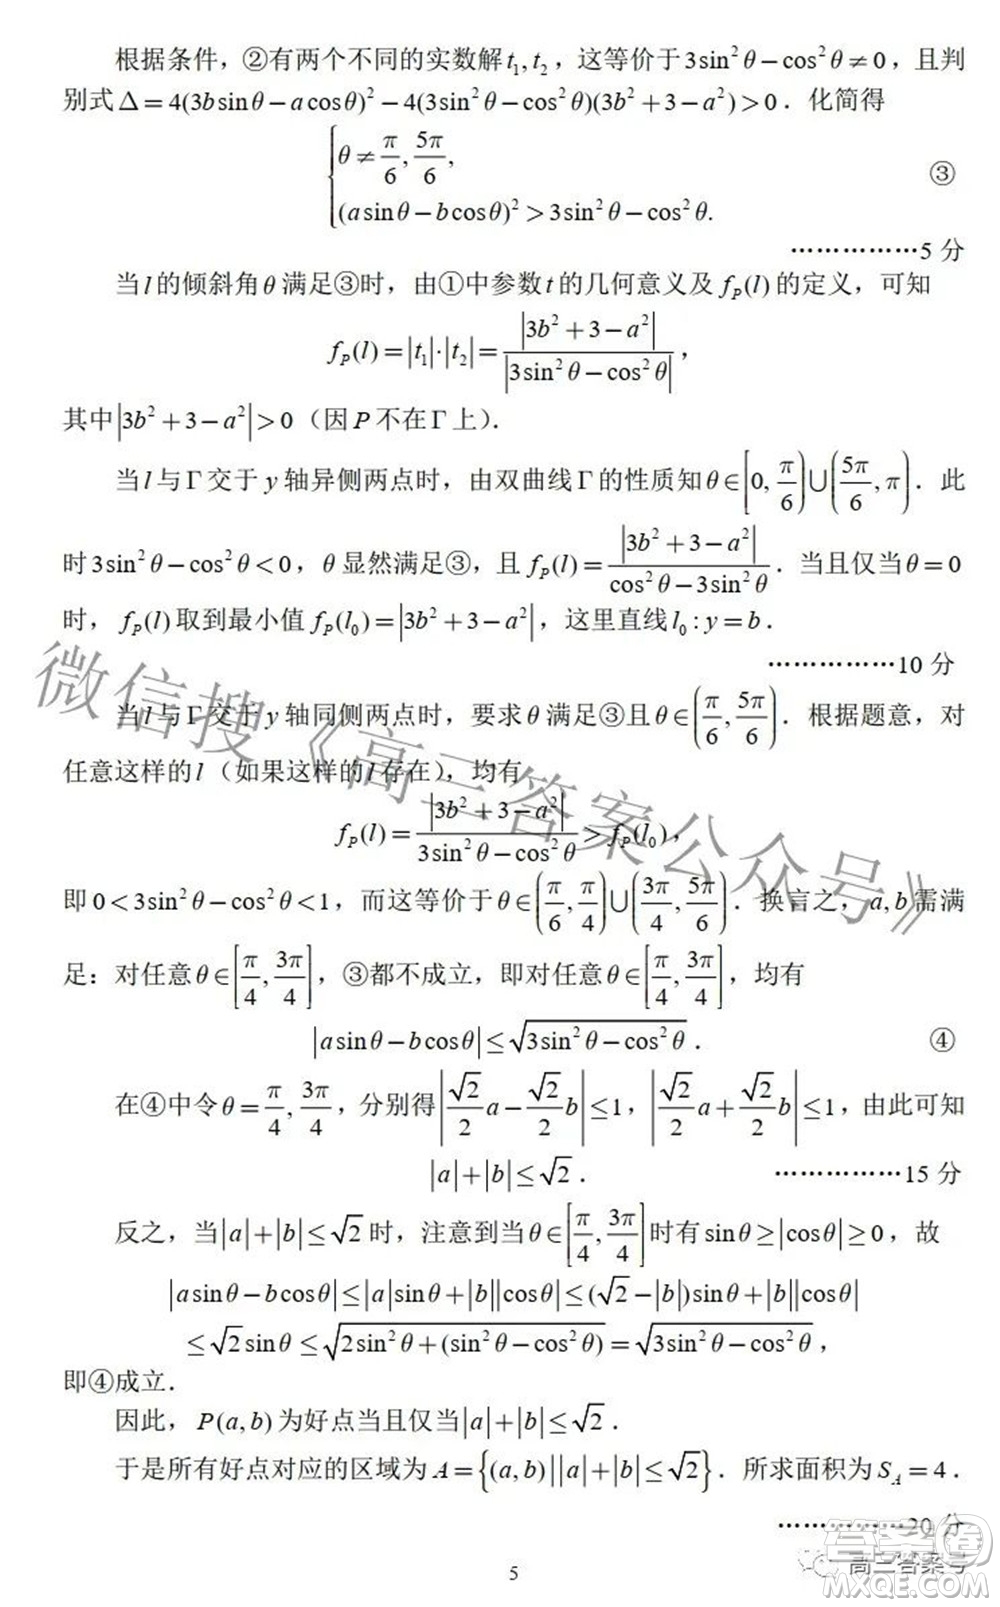 根据条件，②有两个不同的实数解 t₁, t₂，这等价于 3sin²θ−cos²θ≠0，且判
别式 Δ=4(3bsinθ−acosθ)²−4(3sin²θ−cos²θ)(3b²+3−a²)>0．化简得
{ θ≠π/6, 5π/6,
(asinθ−bcosθ)²>3sin²θ−cos²θ. ③
………………5 分
当 l 的倾斜角 θ 满足③时，由①中参数 t 的几何意义及 f_P(l) 的定义，可知
f_P(l)=|t₁|·|t₂|=|3b²+3−a²|/|3sin²θ−cos²θ|，
其中|3b²+3−a²|>0（因 P 不在 Γ 上）．
当 l 与 Γ 交于 y 轴异侧两点时，由双曲线 Γ 的性质知 θ∈[0, π/6)∪(5π/6, π)．此
时 3sin²θ−cos²θ<0，θ 显然满足③，且 f_P(l)=|3b²+3−a²|/(cos²θ−3sin²θ)．当且仅当 θ=0
时，f_P(l) 取到最小值 f_P(l₀)=|3b²+3−a²|，这里直线 l₀: y=b．
………………10 分
当 l 与 Γ 交于 y 轴同侧两点时，要求 θ 满足③且 θ∈(π/6, 5π/6)．根据题意，对
任意这样的 l（如果这样的 l 存在），均有
f_P(l)=|3b²+3−a²|/(3sin²θ−cos²θ)>f_P(l₀)，
即 0<3sin²θ−cos²θ<1，而这等价于 θ∈(π/6, π/4)∪(3π/4, 5π/6)．换言之，a, b 需满
足：对任意 θ∈[π/4, 3π/4]，③都不成立，即对任意 θ∈[π/4, 3π/4]，均有
|asinθ−bcosθ|≤√(3sin²θ−cos²θ)． ④
在④中令 θ=π/4, 3π/4，分别得|√2/2 a−√2/2 b|≤1，|√2/2 a+√2/2 b|≤1，由此可知
|a|+|b|≤√2． ………………15 分
反之，当|a|+|b|≤√2 时，注意到当 θ∈[π/4, 3π/4] 时有 sinθ≥|cosθ|≥0，故
|asinθ−bcosθ|≤|a|sinθ+|b||cosθ|≤(√2−|b|)sinθ+|b||cosθ|
≤√2sinθ≤√(2sin²θ+(sin²θ−cos²θ))=√(3sin²θ−cos²θ)，
即④成立．
因此，P(a, b) 为好点当且仅当|a|+|b|≤√2．
于是所有好点对应的区域为 A={(a, b)||a|+|b|≤√2}．所求面积为 S_A=4．
………………20 分
5
微信搜《高三答案公众号》
高三答案号
答案圈
MXQE.COM